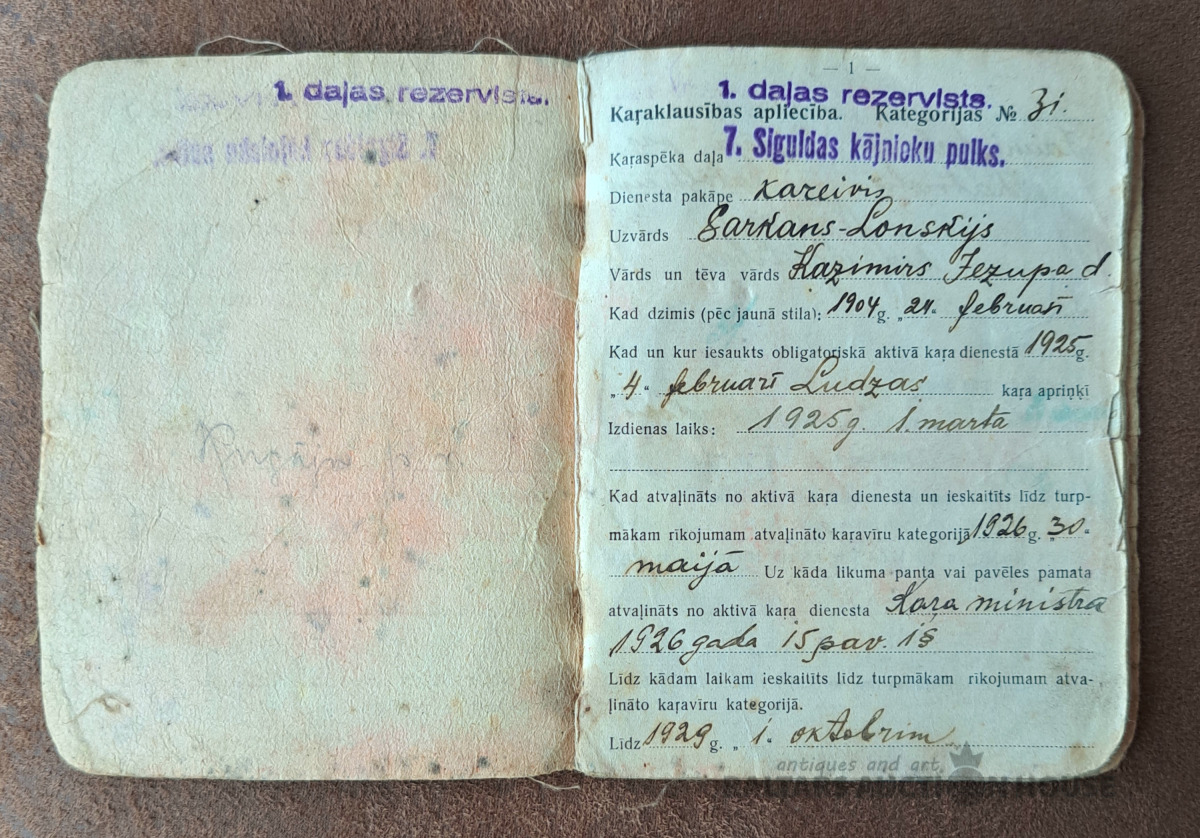 1. daļas rezervists.
— 1 —
1. daļas rezervists.
Kaŗaklausības apliecība. Kategorijas № 3i.
Kaŗaspēka daļa 7. Siguldas kājnieku pulks.
Dienesta pakāpe kareivis
Uzvārds Sarkans-Lonskijs
Vārds un tēva vārds Kazimirs Jezupa d.
Kad dzimis (pēc jaunā stila): 1904 g. „24“ februarī
Kad un kur iesaukts obligatoriskā aktivā kaŗa dienestā 1925 g.
„4“ februarī Ludzas kaŗa apriņķī
Izdienas laiks: 1925g. 1. marta
Kad atvaļināts no aktivā kaŗa dienesta un ieskaitīts līdz turp-
mākam rīkojumam atvaļināto kaŗavīru kategorijā 1926 g. „30“
maijā Uz kāda likuma panta vai pavēles pamata
atvaļināts no aktivā kaŗa dienesta Kaŗa ministra
1926 gada 15 pav. 1§
Līdz kādam laikam ieskaitīts līdz turpmākam rīkojumam atva-
ļināto kaŗavīru kategorijā.
Līdz 1929 g. „ 1. oktobrim
antiques and art